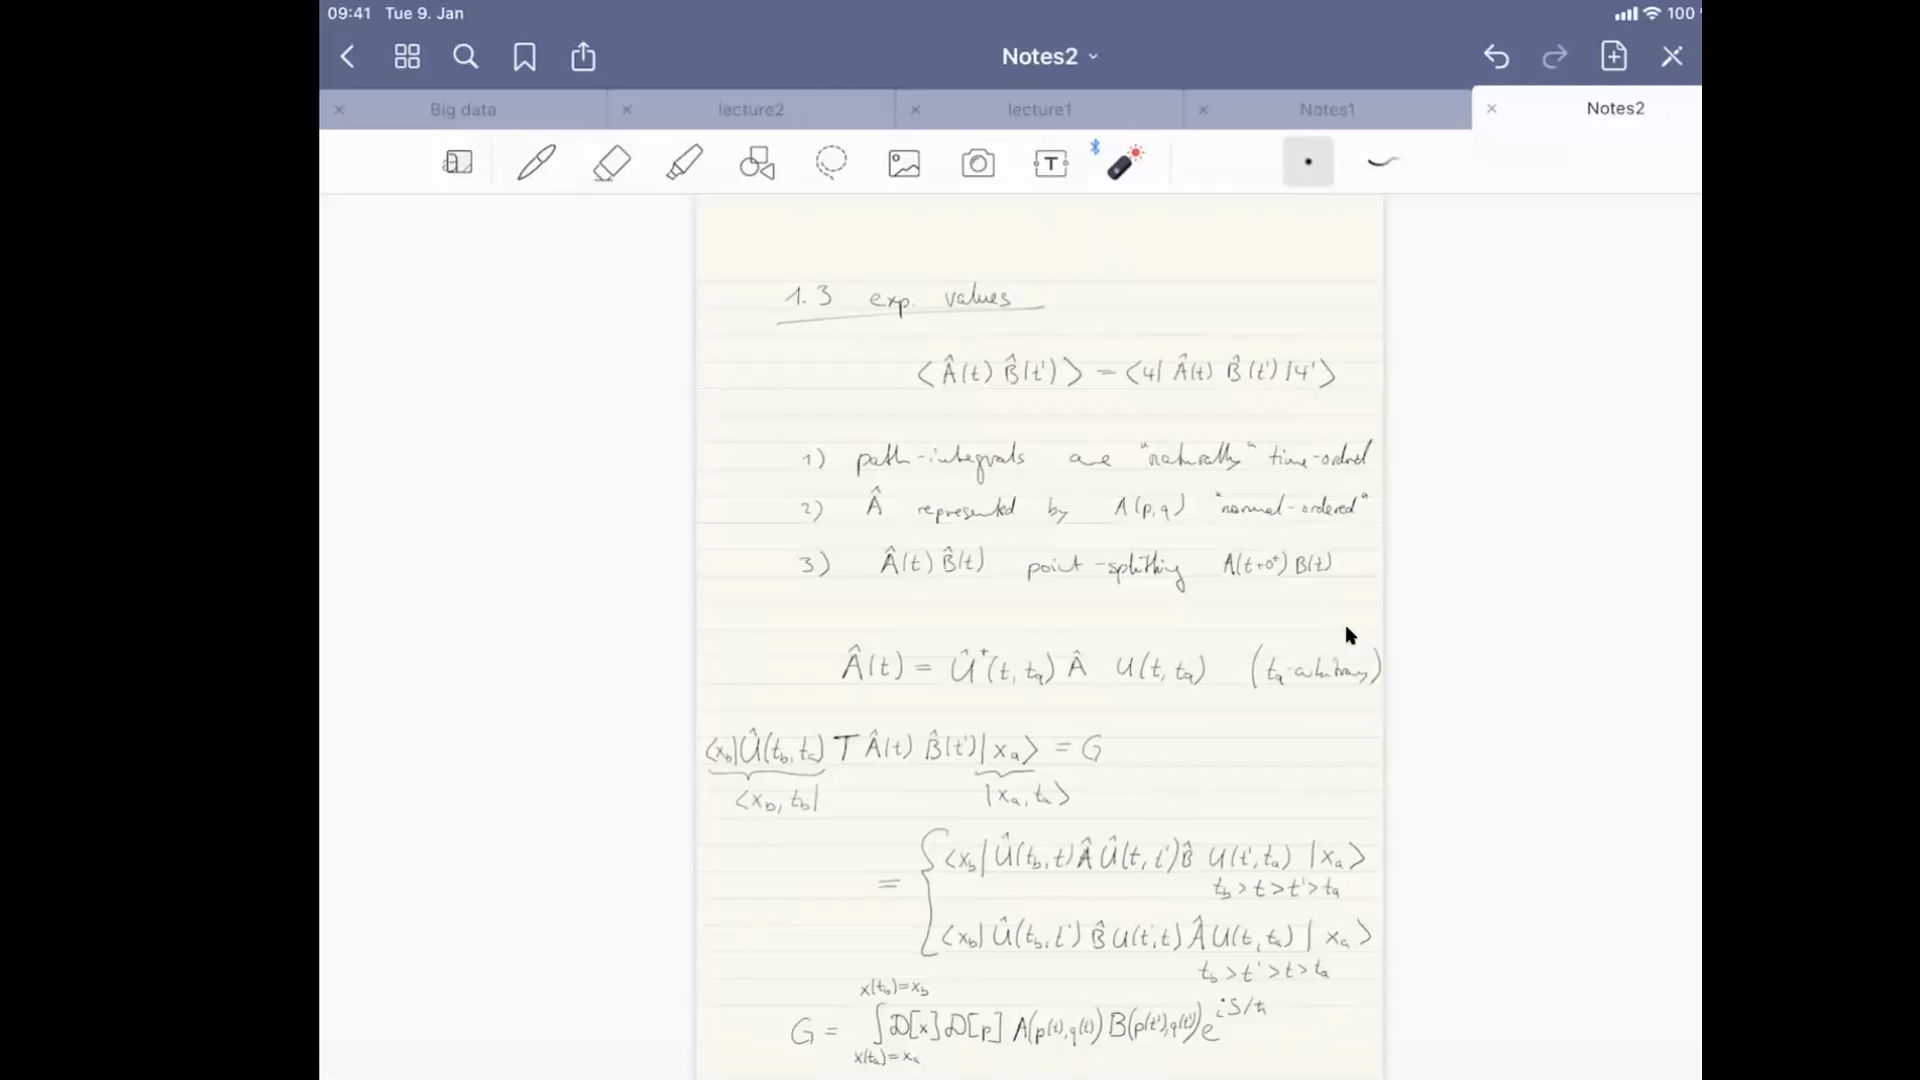 09:41 Tue 9. Jan 100
Notes2
Big data lecture2 lecture1 Notes1 Notes2
1.3 exp. values
⟨Â(t) B̂(t')⟩ = ⟨ψ| Â(t) B̂(t') |ψ'⟩
1) path-integrals are "naturally" time-ordred
2) Â represented by A(p,q) "normal-ordered"
3) Â(t) B̂(t) point-splitting A(t+0⁺) B(t)
Â(t) = Û⁺(t, tₐ) Â U(t, tₐ) (tₐ-arbitrary)
⟨x_b|Û(t_b, tₐ) T Â(t) B̂(t')|xₐ⟩ = G
⟨x_b, t_b| |xₐ, tₐ⟩
= { ⟨x_b| Û(t_b, t) Â Û(t, t') B̂ U(t', tₐ) |xₐ⟩
t_b > t > t' > tₐ
⟨x_b| Û(t_b, t') B̂ U(t', t) Â U(t, tₐ) | xₐ⟩
t_b > t' > t > tₐ
x(t_b)=x_b
G = ∫ D[x] D[p] A(p(t),q(t)) B(p(t'),q(t')) e^{iS/ħ}
x(tₐ)=xₐ